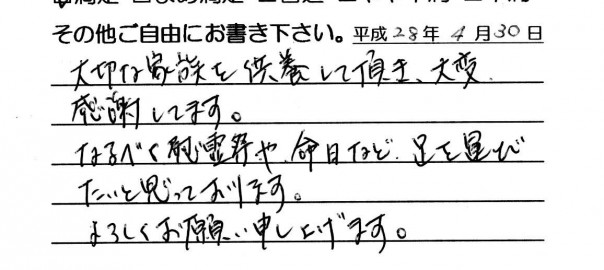 その他ご自由にお書き下さい。平成28年4月30日
大切な家族を供養して頂き、大変
感謝してます。
なるべく慰霊祭や、命日など、足を運び
たいと思っております。
よろしくお願い申し上げます。